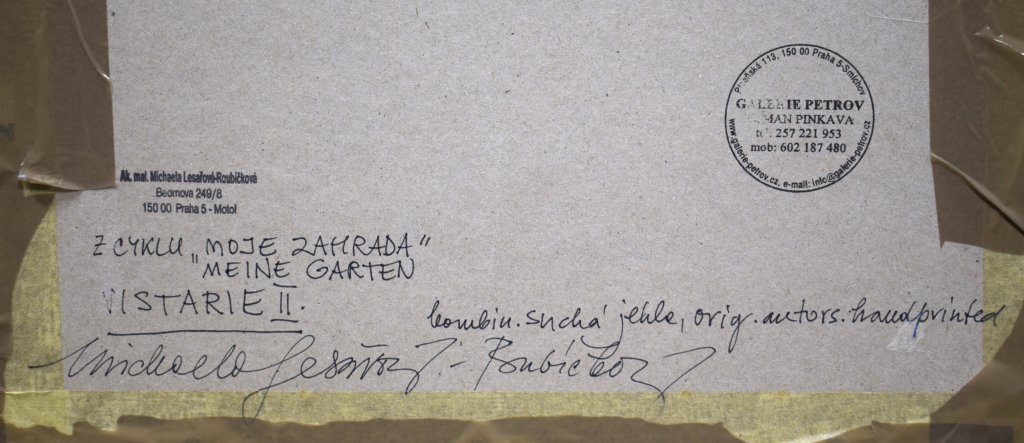 Plzeňská 113, 150 00 Praha 5-Smíchov
GALERIE PETROV
MAN PINKAVA
tel. 257 221 953
mob: 602 187 480
www.galerie-petrov.cz, e-mail: info@galerie-petrov.cz
Ak. mal. Michaela Lesařová-Roubíčková
150 00 Praha 5 - Motol
Z CYKLU „MOJE ZAHRADA“
MEINE GARTEN
VISTARIE II.
kombin. suchá jehla, orig. autors. handprinted
Michaela Lesařová - Roubíčková